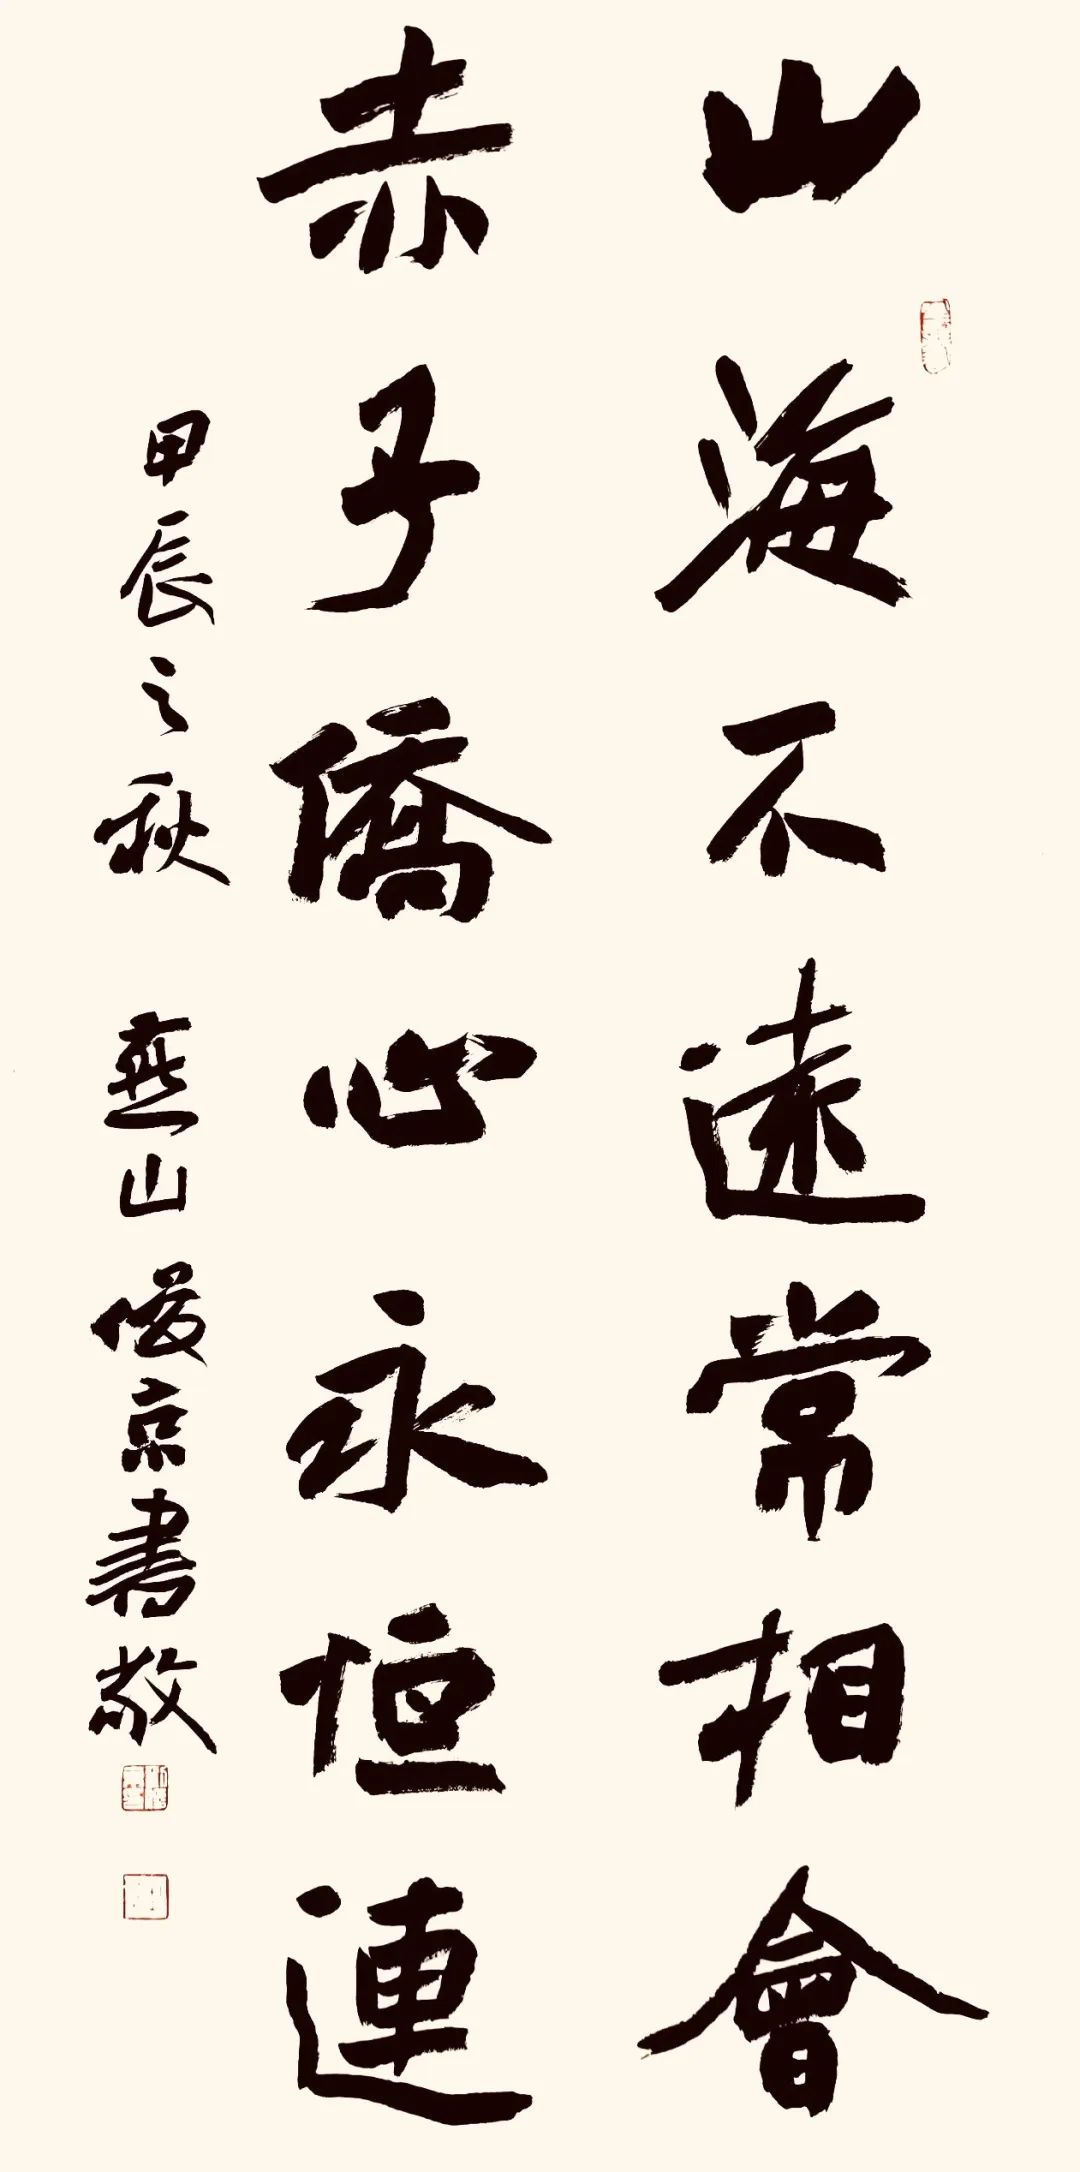 山海不遠常相會
赤子僑心永恒連
甲辰之秋 燕山俊京書敬